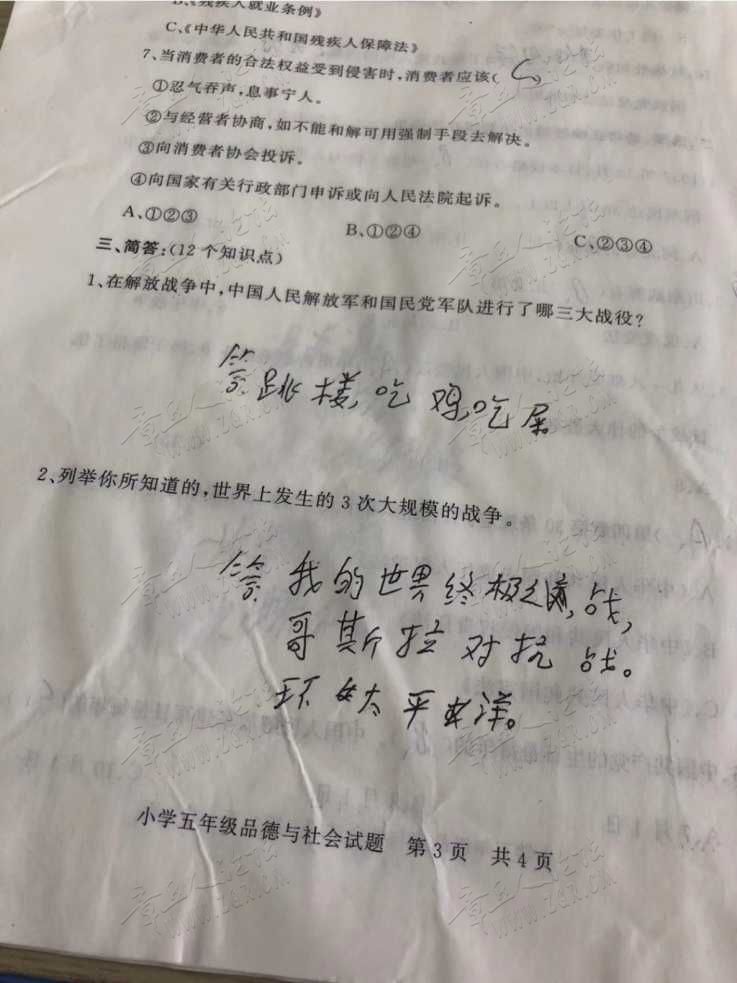 B、《残疾人就业条例》
C、《中华人民共和国残疾人保障法》
7、当消费者的合法权益受到侵害时,消费者应该( C、
①忍气吞声,息事宁人。
②与经营者协商,如不能和解可用强制手段去解决。
③向消费者协会投诉。
④向国家有关行政部门申诉或向人民法院起诉。
A、①②③ B、①②④ C、②③④
三、简答:(12个知识点)
1、在解放战争中,中国人民解放军和国民党军队进行了哪三大战役?
答 跳楼,吃鸡,吃屎
2、列举你所知道的,世界上发生的3次大规模的战争。
答 我的世界终极之战,
哥斯拉对抗战。
环太平洋。
小学五年级品德与社会试题 第3页 共4页
章鱼人论坛
(WWW.ZGX.CN)